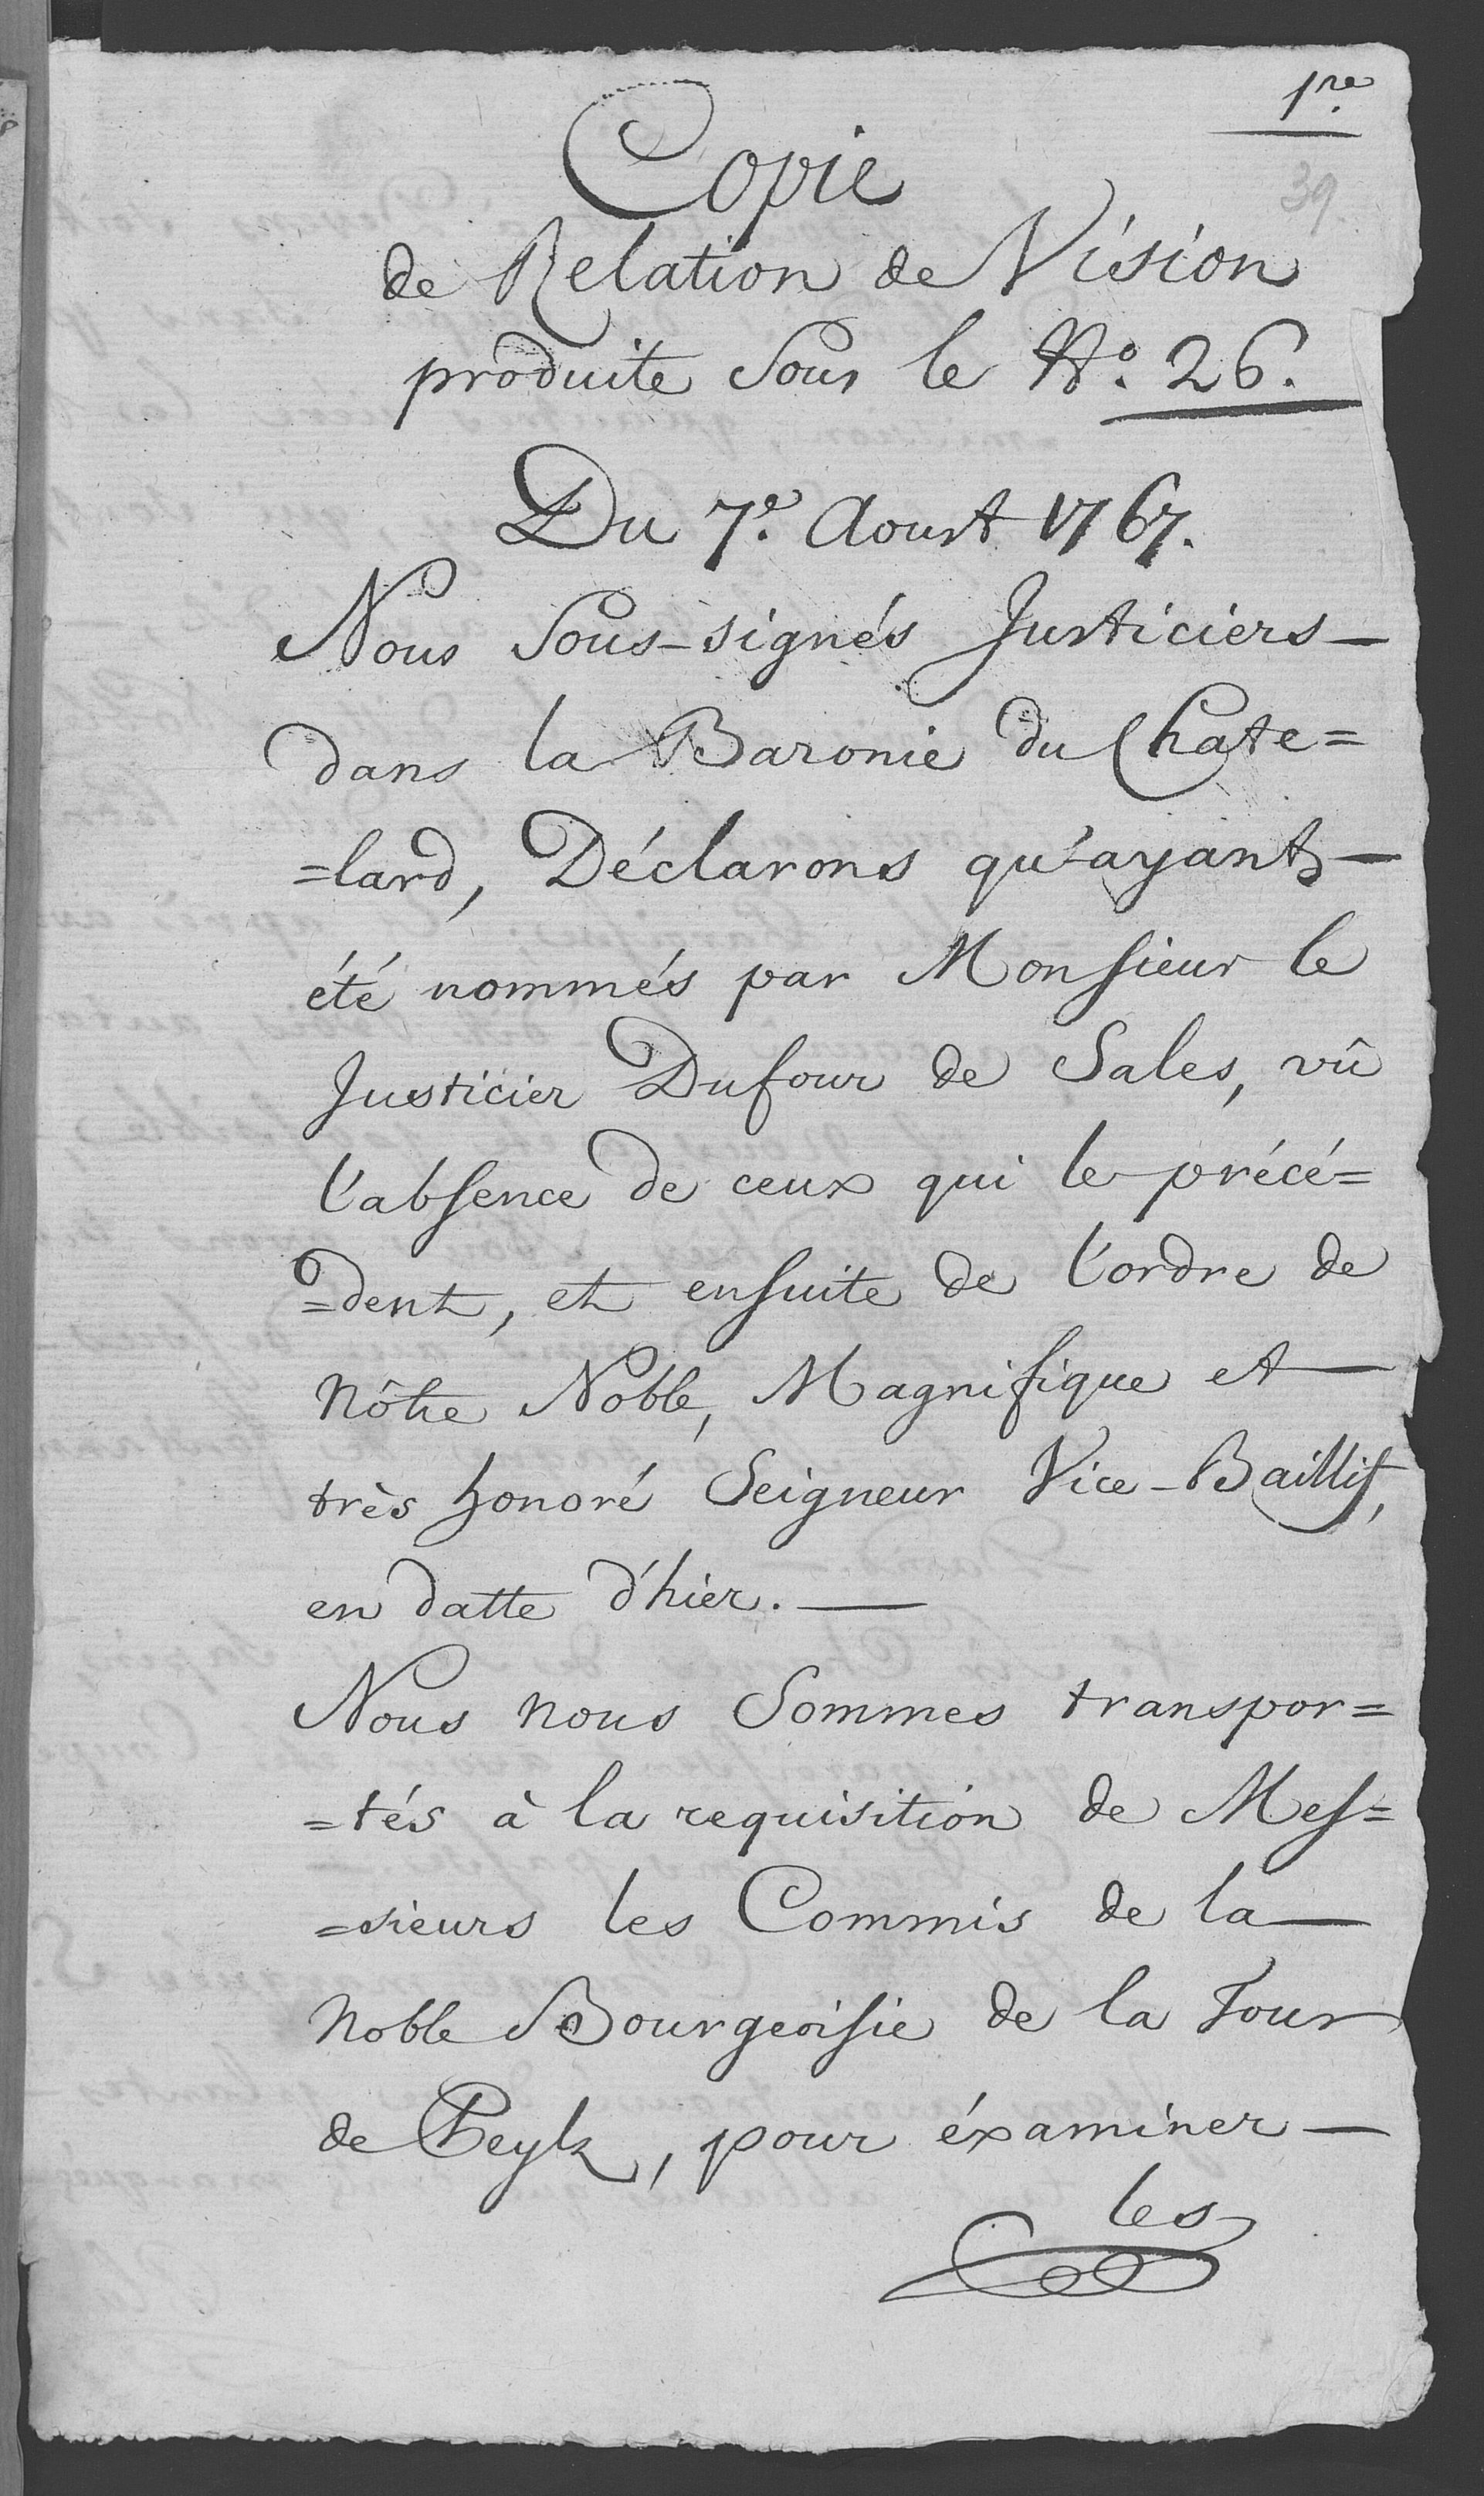 1.re
39
Copie
de Relation de Vision
produite sous le No. 26.
Du 7.e Aoust 1767.
Nous sous-signés Justiciers
dans la Baronie du Chate=
=lard, Déclarons qu'ayant
été nommés par Monsieur le
Justicier Dufour de Sales, vû
l'absence de ceux qui le précé=
=dent, et ensuite de l'ordre de
nôtre Noble, Magnifique et
très honoré Seigneur Vice-Baillif,
en datte d'hier.
Nous nous sommes transpor=
=tés à la requisition de Mes=
=sieurs les Commis de la
noble Bourgeoisie de la Tour
de Peylz, pour éxaminer
les